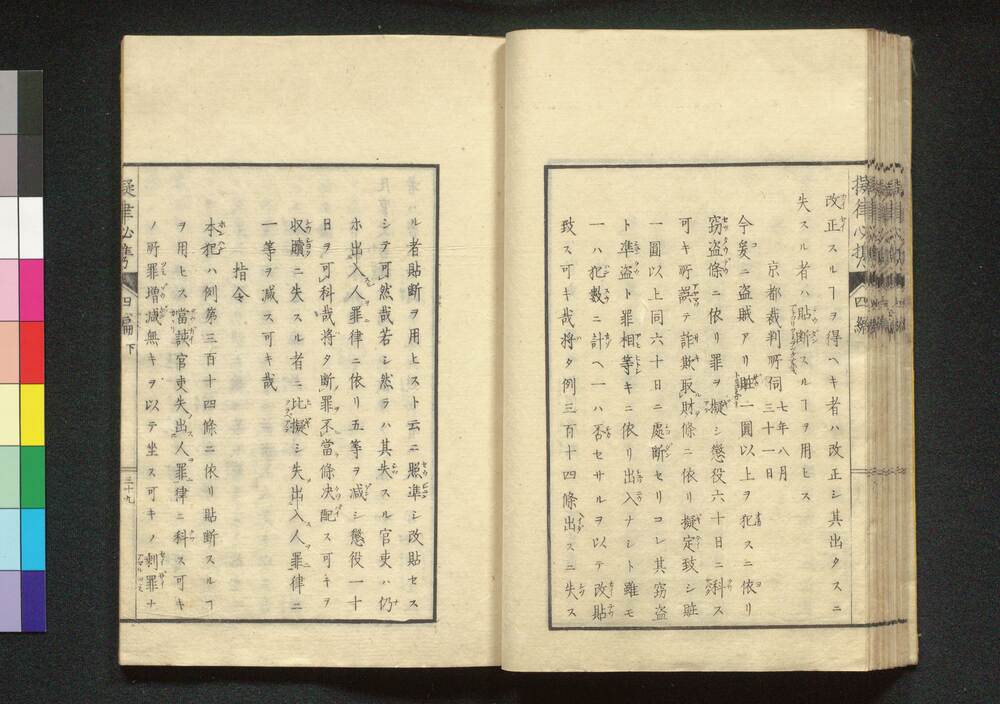 改正スルヿヲ得ヘキ者ハ改正シ其出タスニ
失スル者ハ貼断スルヿヲ用ヒス
京都裁判所伺 七年八月
三十一日
今爰ニ盗賊アリ贓一圓以上ヲ犯スニ依リ
窃盗條ニ依リ罪ヲ擬シ懲役六十日ニ科ス
可キ所誤テ詐欺取財條ニ依リ擬定致シ贓
一圓以上同六十日ニ處断セリコレ其窃盗
ト準盗ト罪相等キニ依リ出入ナシト雖モ
一ハ犯数ニ計ヘ一ハ否セサルヲ以テ改貼
致ス可キ哉将タ例三百十四條出スニ失ス
ハル者貼断ヲ用ヒスト云ニ照準シ改貼セス
シテ可然哉若シ然ラハ其失スル官吏ハ仍
ホ出入人罪律ニ依リ五等ヲ減シ懲役一十
日ヲ可科哉将タ断罪不當條决配ス可キヲ
収贖ニ失スル者ニ比擬シ失出入人罪律ニ
一等ヲ減ス可キ哉
指令
本犯ハ例第三百十四條ニ依リ貼断スルヿ
ヲ用ヒス當該官吏失出人罪律ニ科ス可キ
ノ所罪増減無キヲ以テ坐ス可キノ剰罪ナ
四編 下
三十九